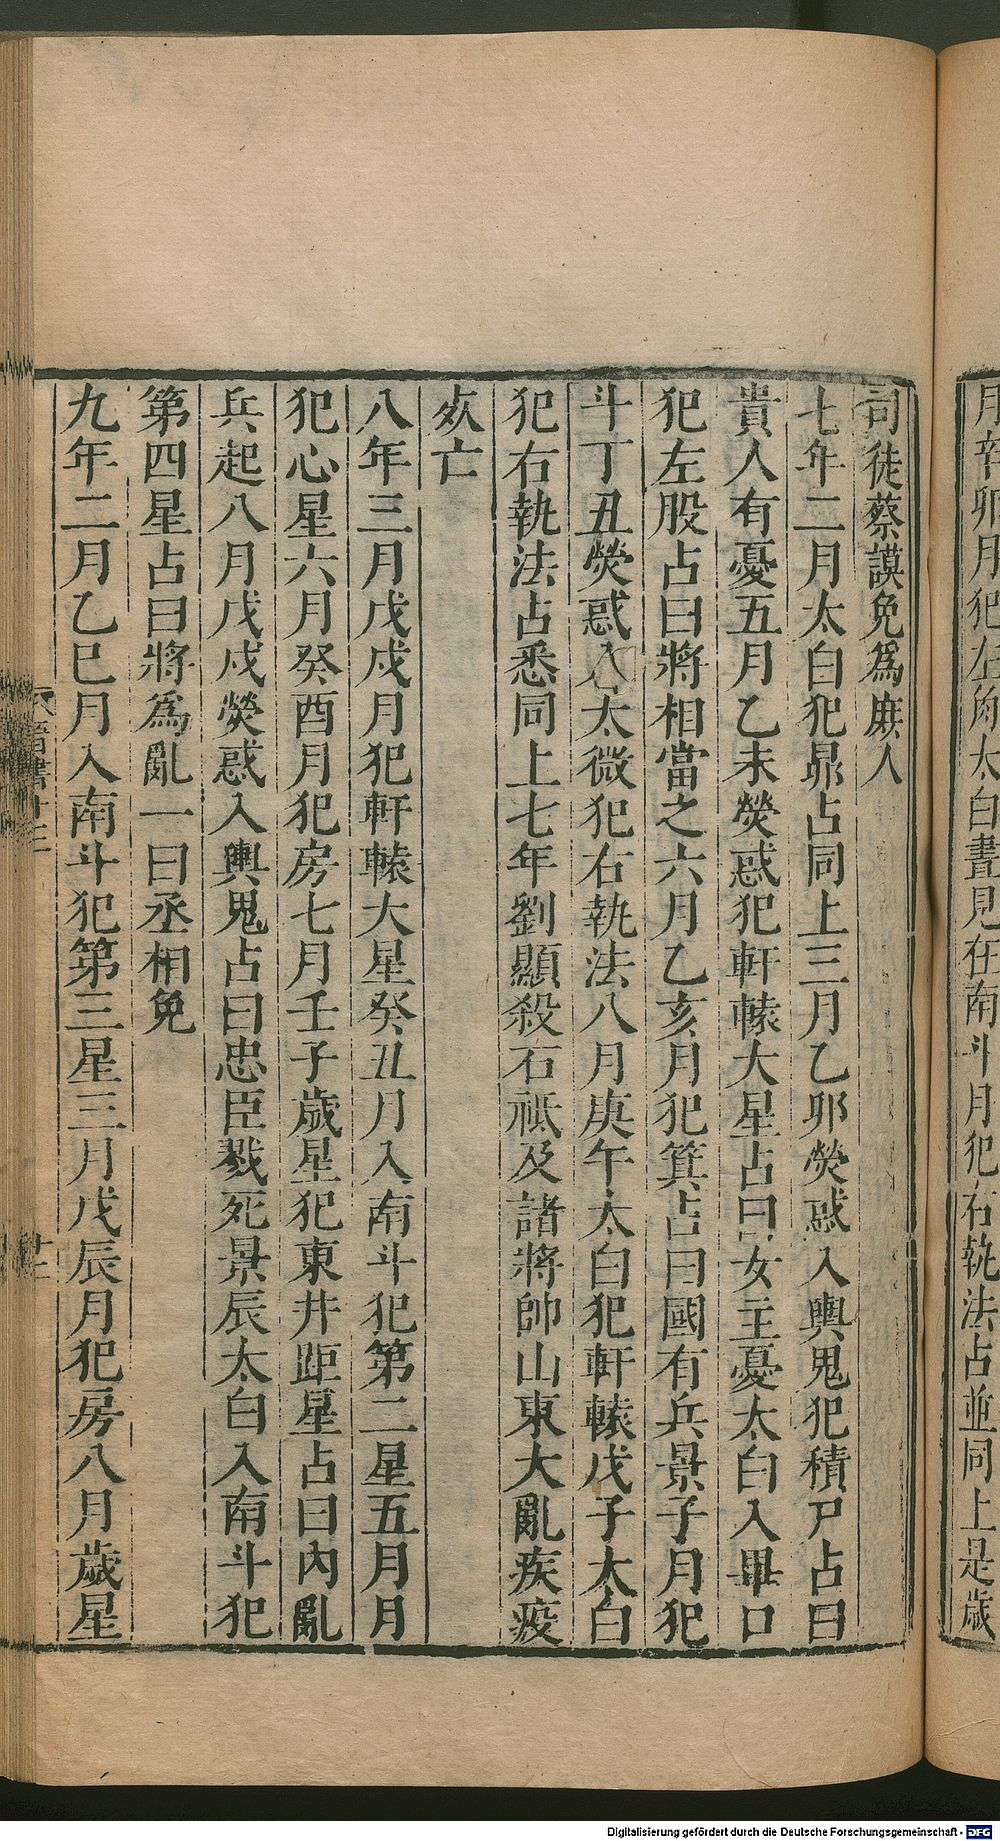 月辛卯月犯左角太白晝見在南斗月犯右執法占並同上是歲
司徒蔡謨免爲庶人
七年二月太白犯昴占同上三月乙卯熒惑入輿鬼犯積尸占曰
貴人有憂五月乙未熒惑犯軒轅大星占曰女主憂太白入畢口
犯左股占曰將相當之六月乙亥月犯箕占曰國有兵景子月犯
斗丁丑熒惑入太微犯右執法八月庚午太白犯軒轅戊子太白
犯右執法占悉同上七年劉顯殺石祗及諸將帥山東大亂疾疫
死亡
八年三月戊戌月犯軒轅大星癸丑月入南斗犯第二星五月月
犯心星六月癸酉月犯房七月壬子歲星犯東井距星占曰內亂
兵起八月戊戌熒惑入輿鬼占曰忠臣戮死景辰太白入南斗犯
第四星占曰將爲亂一曰丞相免
九年二月乙巳月入南斗犯第三星三月戊辰月犯房八月歲星
晉書十三
十二
Digitalisierung gefördert durch die Deutsche Forschungsgemeinschaft - DFG